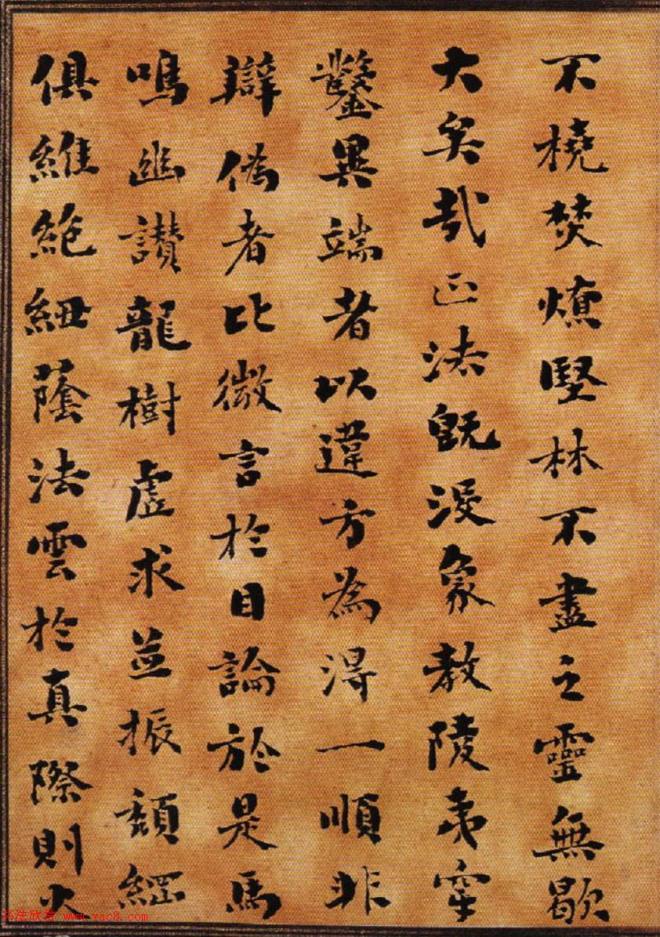 不橈焚燎堅林不盡之靈無歇
大矣哉正法既沒象教陵夷穿
鑿異端者以違方為得一順非
辯偽者比微言於目論於是馬
鳴幽讚龍樹虛求並振頹綱
俱維絕紐蔭法雲於真際則火
书法欣赏 www.yac8.com